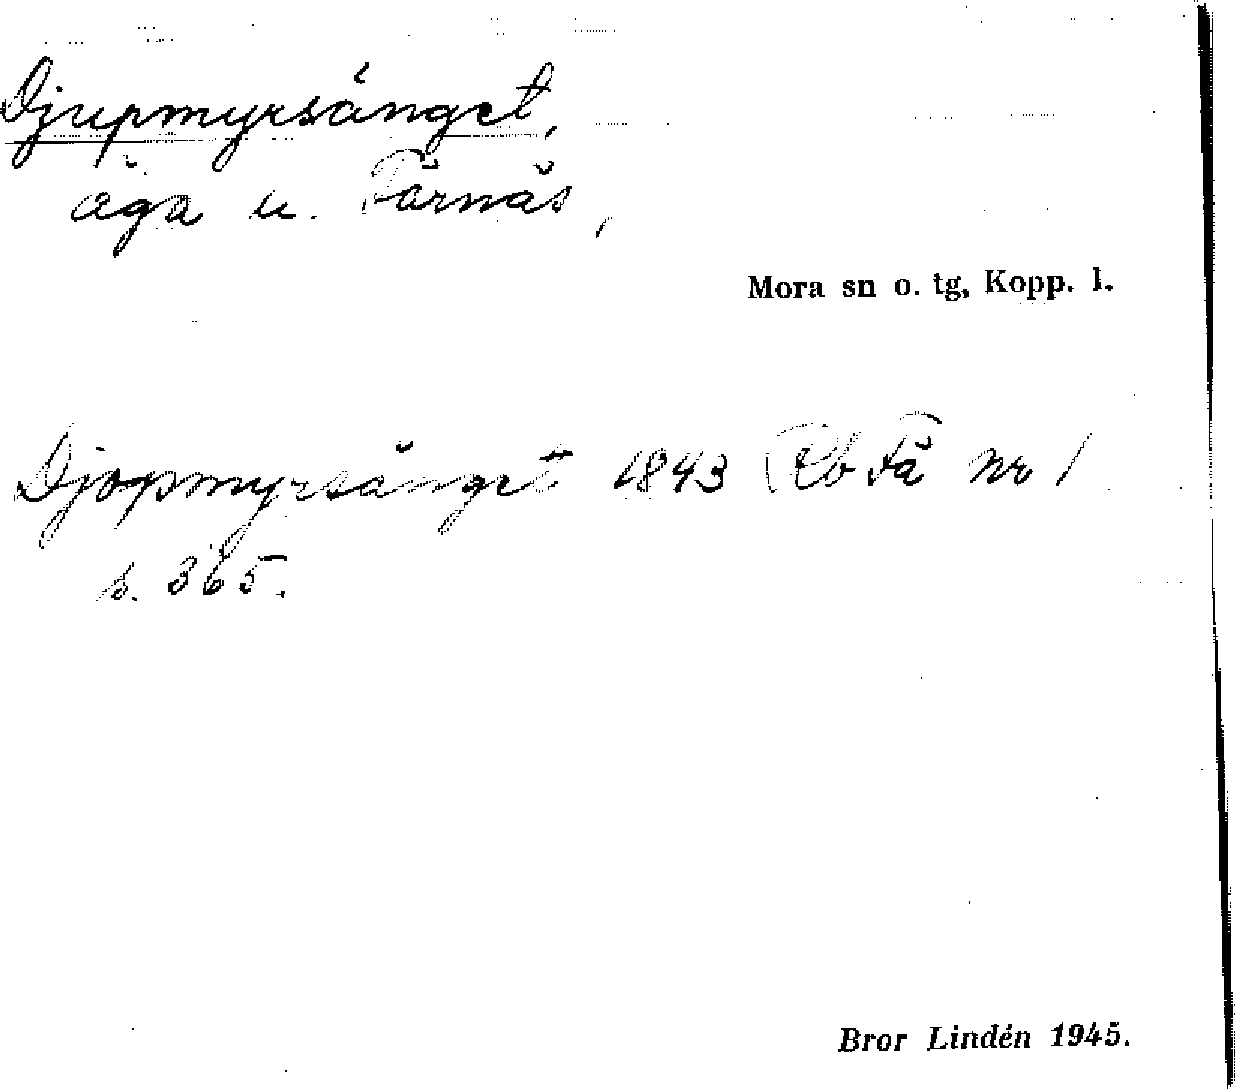 Djupmyrsänget,
äga u. Färnäs,
Mora sn o. tg, Kopp. l.
Djopmyrsänget 1843 Rb Fä nr 1
s. 365.
Bror Lindén 1945.